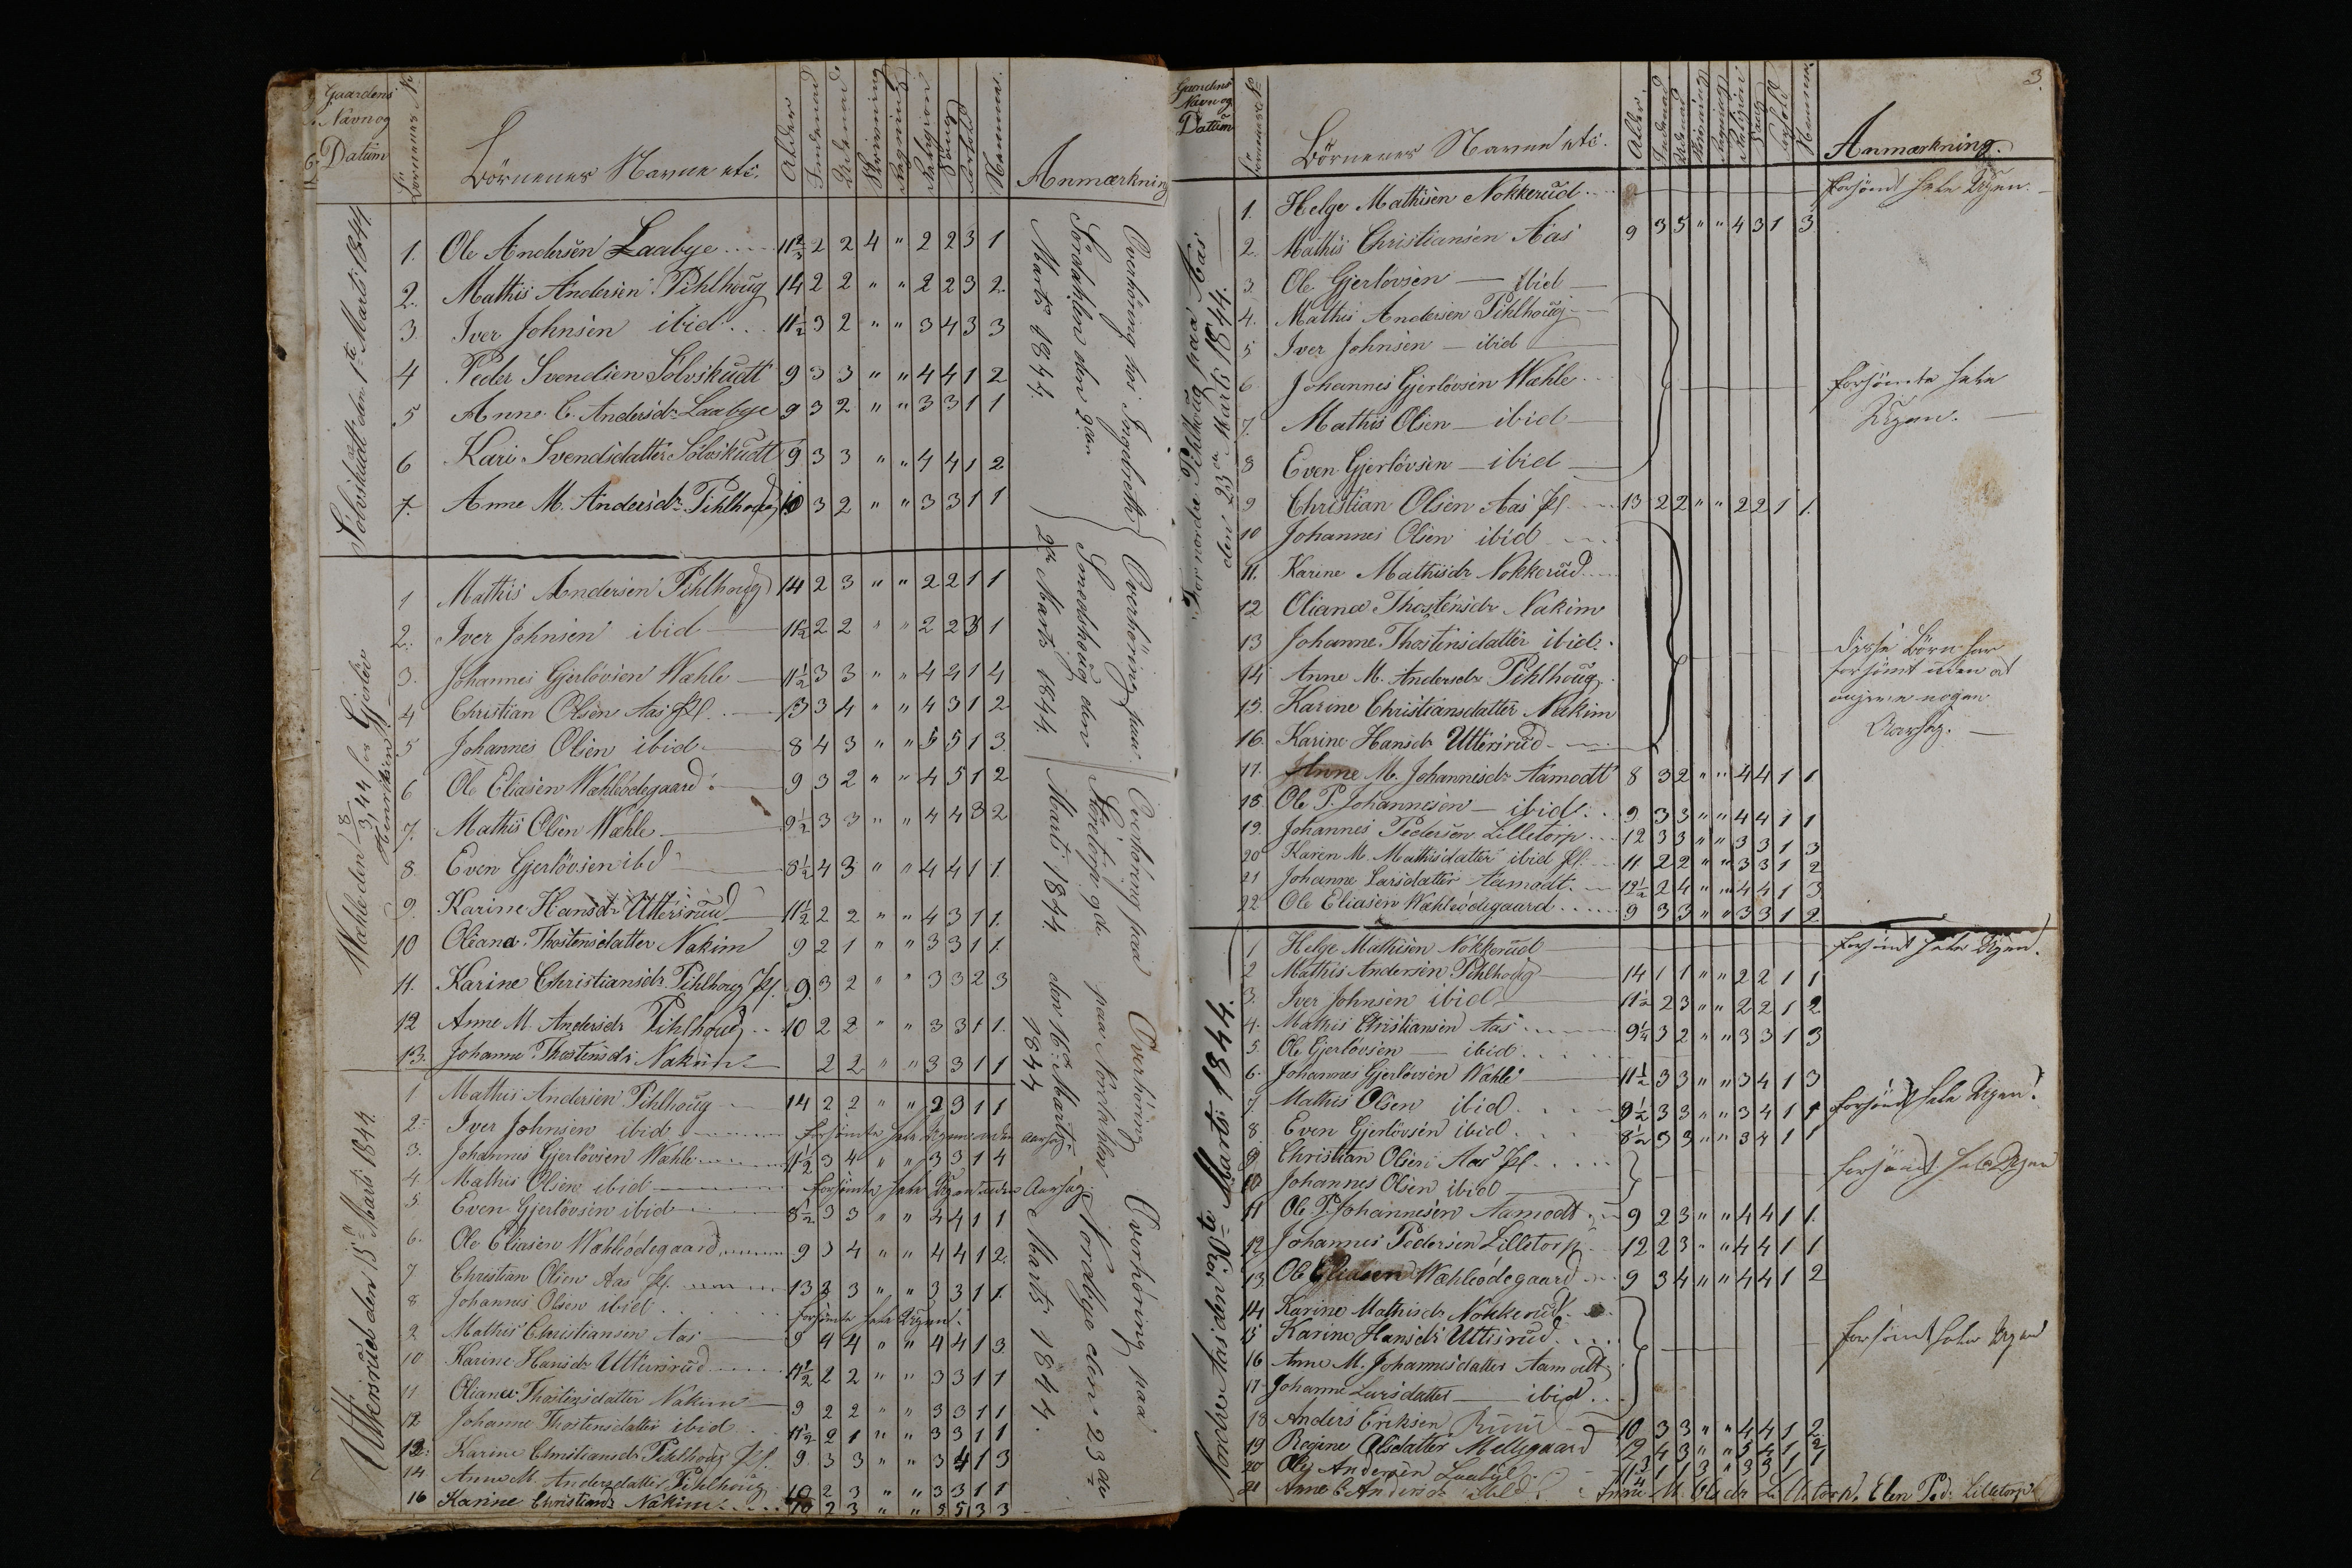 Gaardens Navn og Datum Börnenes No Börnenes Navne etc. Alder Indenad Udenad Skrivning Regning Religion Sang Forhold Nemme. Anmærkning
Sölvskudt den 1ste Marti 1844.
1. Ole Andersen Laabye 11½ 2 2 4 " 2 2 3 1
2. Mathis Andersen Pihlhoug 14 2 2 " " 2 2 3 2.
3. Iver Johnsen ibid 11½ 3 2 " " 3 4 3 3
4 Peder Svendsen Sölvskudt 9 3 3 " " 4 4 1 2
5 Anne C. Andersdr Laabye 9 3 2 " " 3 3 1 1
6 Kari Svendsdatter Sölvskudt 9 3 3 " " 4 4 1 2
7. Anne M. Andersdr Pihlhoug 10 3 2 " " 3 3 1 1
Wæhle den 8/3 44 for Gjerlöv Henriksen
1 Mathis Andersen Pihlhoug 14 2 3 " " 2 2 1 1
2. Iver Johnsen ibid 11½ 2 2 " " 2 2 3 1
3. Johannes Gjerlövsen Wæhle 11½ 3 3 " " 4 4 1 4
4 Christian Olsen Aas Pl. 13 3 4 " " 4 3 1 2
5 Johannes Olsen ibid 8 4 3 " " 5 5 1 3.
6 Ole Eliasen Wæhleödegaard 9 3 2 " " 4 5 1 2
7. Mathis Olsen Wæhle 9½ 3 3 " " 4 4 3 2
8. Even Gjerlövsen ibd 8½ 4 3 " " 4 4 1 1.
9. Karine Hansdr Uttersrud 11½ 2 2 " " 4 3 1 1.
10 Oliana Thostensdatter Nakim 9 2 1 " " 3 3 1 1.
11. Karine Christiansdr Pihlhoug Pl. 9. 3 2 " " 3 3 2 3
12 Anne M. Andersdr Pihlhoug 10 2 2 " " 3 3 1 1.
13. Johanne Thostensdr Nakim 2 2 " " 3 3 1 1
Uttersrud den 15de Marti 1844.
1 Mathis Andersen Pihlhoug 14 2 2 " " 2 3 1 1
2. Iver Johnsen ibid forsömte hele Ugen uden Aarsag
3. Johannes Gjerlövsen Wæhle 11½ 3 4 " " 3 3 1 4
4. Mathis Olsen ibid forsömte hele Ugen uden Aarsag.
5. Even Gjerlövsen ibid 8½ 3 3 " " 4 4 1 1
6. Ole Eliasen Wæhleödegaard 9 3 4 " " 4 4 1 2.
7 Christian Olsen Aas Pl. 13 2 3 " " 3 3 1 1.
8 Johannes Olsen ibid forsömte hele Ugen.
9 Mathis Christiansen Aas 9 4 4 " " 4 4 1 3.
10 Karine Hansdr Uttersrud 11½ 2 2 " " 3 3 1 1
11 Oliana Thostensdatter Nakim 9 2 2 " " 3 3 1 1
12 Johanne Thostensdatter ibid 11½ 2 1 " " 3 3 1 1
13. Karine Christiansdr Pihlhoug Pl. 9 3 3 " " 3 4 1 3
14 Anne M. Andersdatter Pihlhoug 10 2 3 " " 3 3 1 1
16 Karine Christiansdr Nakim 10 2 3 " " 5 5 3 3
Overhöring hos Ingebreth Sördahlen den 2den Marts 1844.
Overhöring paa Smedshoug den 2de Marts 1844
Overhöring paa Störetorp 9de Marti 1844
Overhöring paa Nordahlen den 16de Marti 1844
Overhöring paa Nordbye den 23de Marts 1844.
Gaardens Navn og Datum Börnenes No Börnenes Navne etc. Alder Indenad Udenad Skrivning Regning Religion Sang Forhold Nemme Anmærkning.
3.
For nordre Pihlhoug paa Aas den 23de Marti 1844.
1. Helge Mathisen Nokkerud forsömt hele Ugen.
2. Mathis Christiansen Aas 9 3 5 " " 4 3 1 3
3 Ole Gjerlövsen ibid
4. Mathis Andersen Pihlhoug
5 Iver Johnsen ibid
6. Johannes Gjerlövsen Wæhle forsömte hele Ugen.
7. Mathis Olsen ibid
8 Even Gjerlövsen ibid
9 Christian Olsen Aas Pl. 13 2 2 " " 2 2 1 1.
10 Johannes Olsen ibid
11. Karine Mathisdr Nokkerud
12 Oliana Thostensdr Nakim
13 Johanne Thostensdatter ibid.
14 Anne M. Andersdr Pihlhoug. disse Börn har forsömt uden at angive nogen Aarsag.
15. Karine Christiansdatter Nakim
16. Karine Hansdr Uttersrud
17. Anne M. Johannesdr Aamodt 8 3 2 " " 4 4 1 1
18. Ole P. Johannesen ibid. 9 3 3 " " 4 4 1 1
19. Johannes Pedersen Lilletorp 12 3 3 " " 3 3 1 3
20 Karen M. Mathisdatter ibid Pl. 11 2 2 " " 3 3 1 2
21 Johanne Larsdatter Aamodt. 12½ 2 4 " " 4 4 1 3
22 Ole Eliasen Wæhleödegaard 9 3 3 " " 3 3 1 2
Nordre Aas den 30te Marti 1844.
1 Helge Mathisen Nokkerud forsömt hele Ugen.
2 Mathis Andersen Pihlhoug 14 1 1 " " 2 2 1 1
3. Iver Johnsen ibid 11½ 2 3 " " 2 2 1 2
4. Mathis Christiansen Aas 9½ 3 2 " " 3 3 1 3
5. Ole Gjerlövsen ibid
6. Johannes Gjerlövsen Wæhle 11½ 3 3 " " 3 4 1 3
7 Mathis Olsen ibid 9½ 3 3 " " 3 4 1 1 forsömt hele Ugen.
8. Even Gjerlövsen ibid 8½ 3 3 " " 3 4 1 1
9 Christian Olsen Aas Pl. forsömt hele Ugen
10 Johannes Olsen ibid
11 Ole P. Johannesen Aamodt 9 2 3 " " 4 4 1 1.
12 Johannes Pedersen Lilletorp 12 2 3 " " 4 4 1 1
13 Ole Eliasen Wæhleödegaard 9 3 4 " " 4 4 1 2
14 Karine Mathisdr Nokkerud
15 Karine Hansdr Uttisrud forsömt hele Ugen
16 Anne M. Johannesdatter Aamodt
17 Johanne Larsdatter ibid
18 Anders Eriksen 10 3 3 " " 4 4 1 2.
19 Regine Olsdatter Mellegaard 12 4 3 " " 5 4 1 2
20 Ole Andersen Laabye 11¾ 1 1 3 " 3 3 1 1
21 Anne C Andersdr ibid M. Olsdr Lilletorp. Elen Pedr Lilletorp